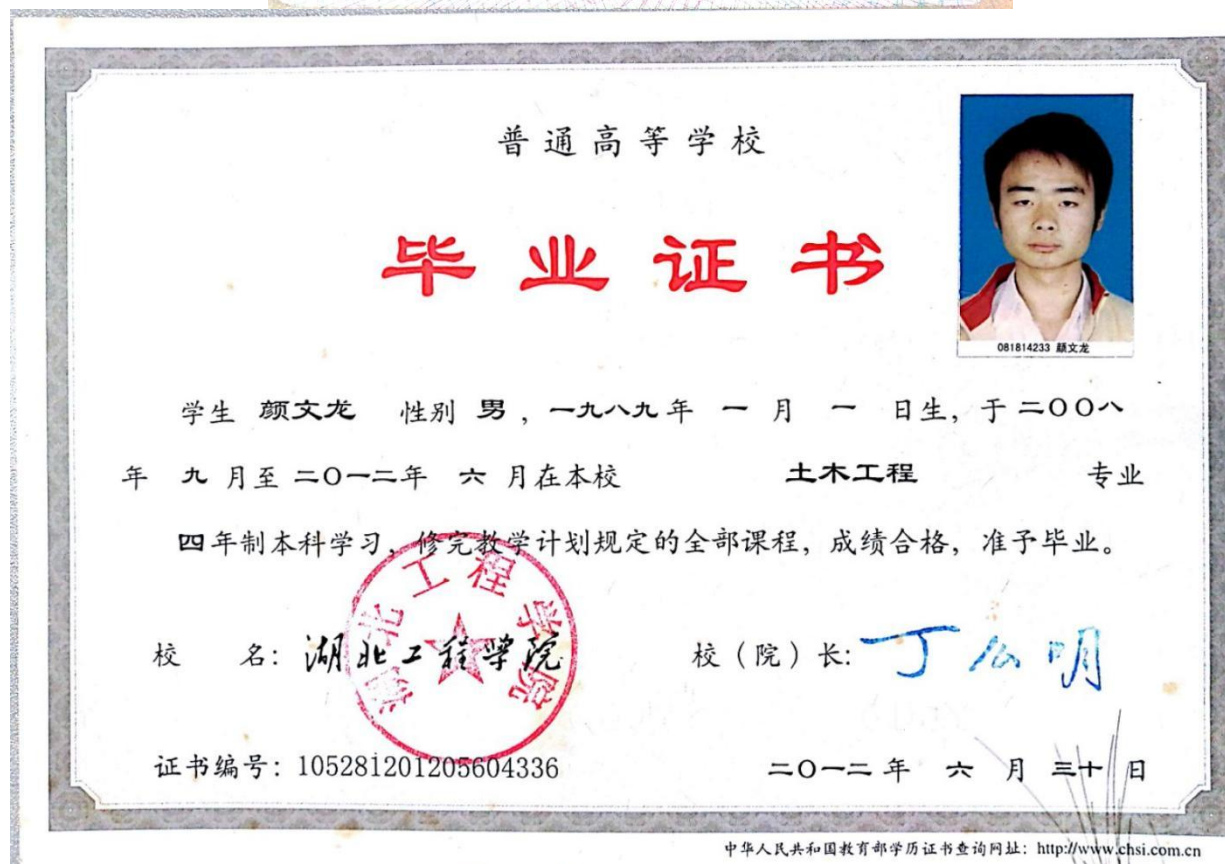 普通高等学校
毕业证书
081814233 颜文龙
学生 颜文龙 性别 男，一九八九年 一 月 一 日生，于二〇〇八
年 九 月至二〇一二年 六 月在本校 土木工程 专业
四年制本科学习，修完教学计划规定的全部课程，成绩合格，准予毕业。
湖北工程学院
校 名：湖北工程学院 校（院）长：丁么明
证书编号：105281201205604336 二〇一二年 六 月 三十 日
中华人民共和国教育部学历证书查询网址：http://www.chsi.com.cn